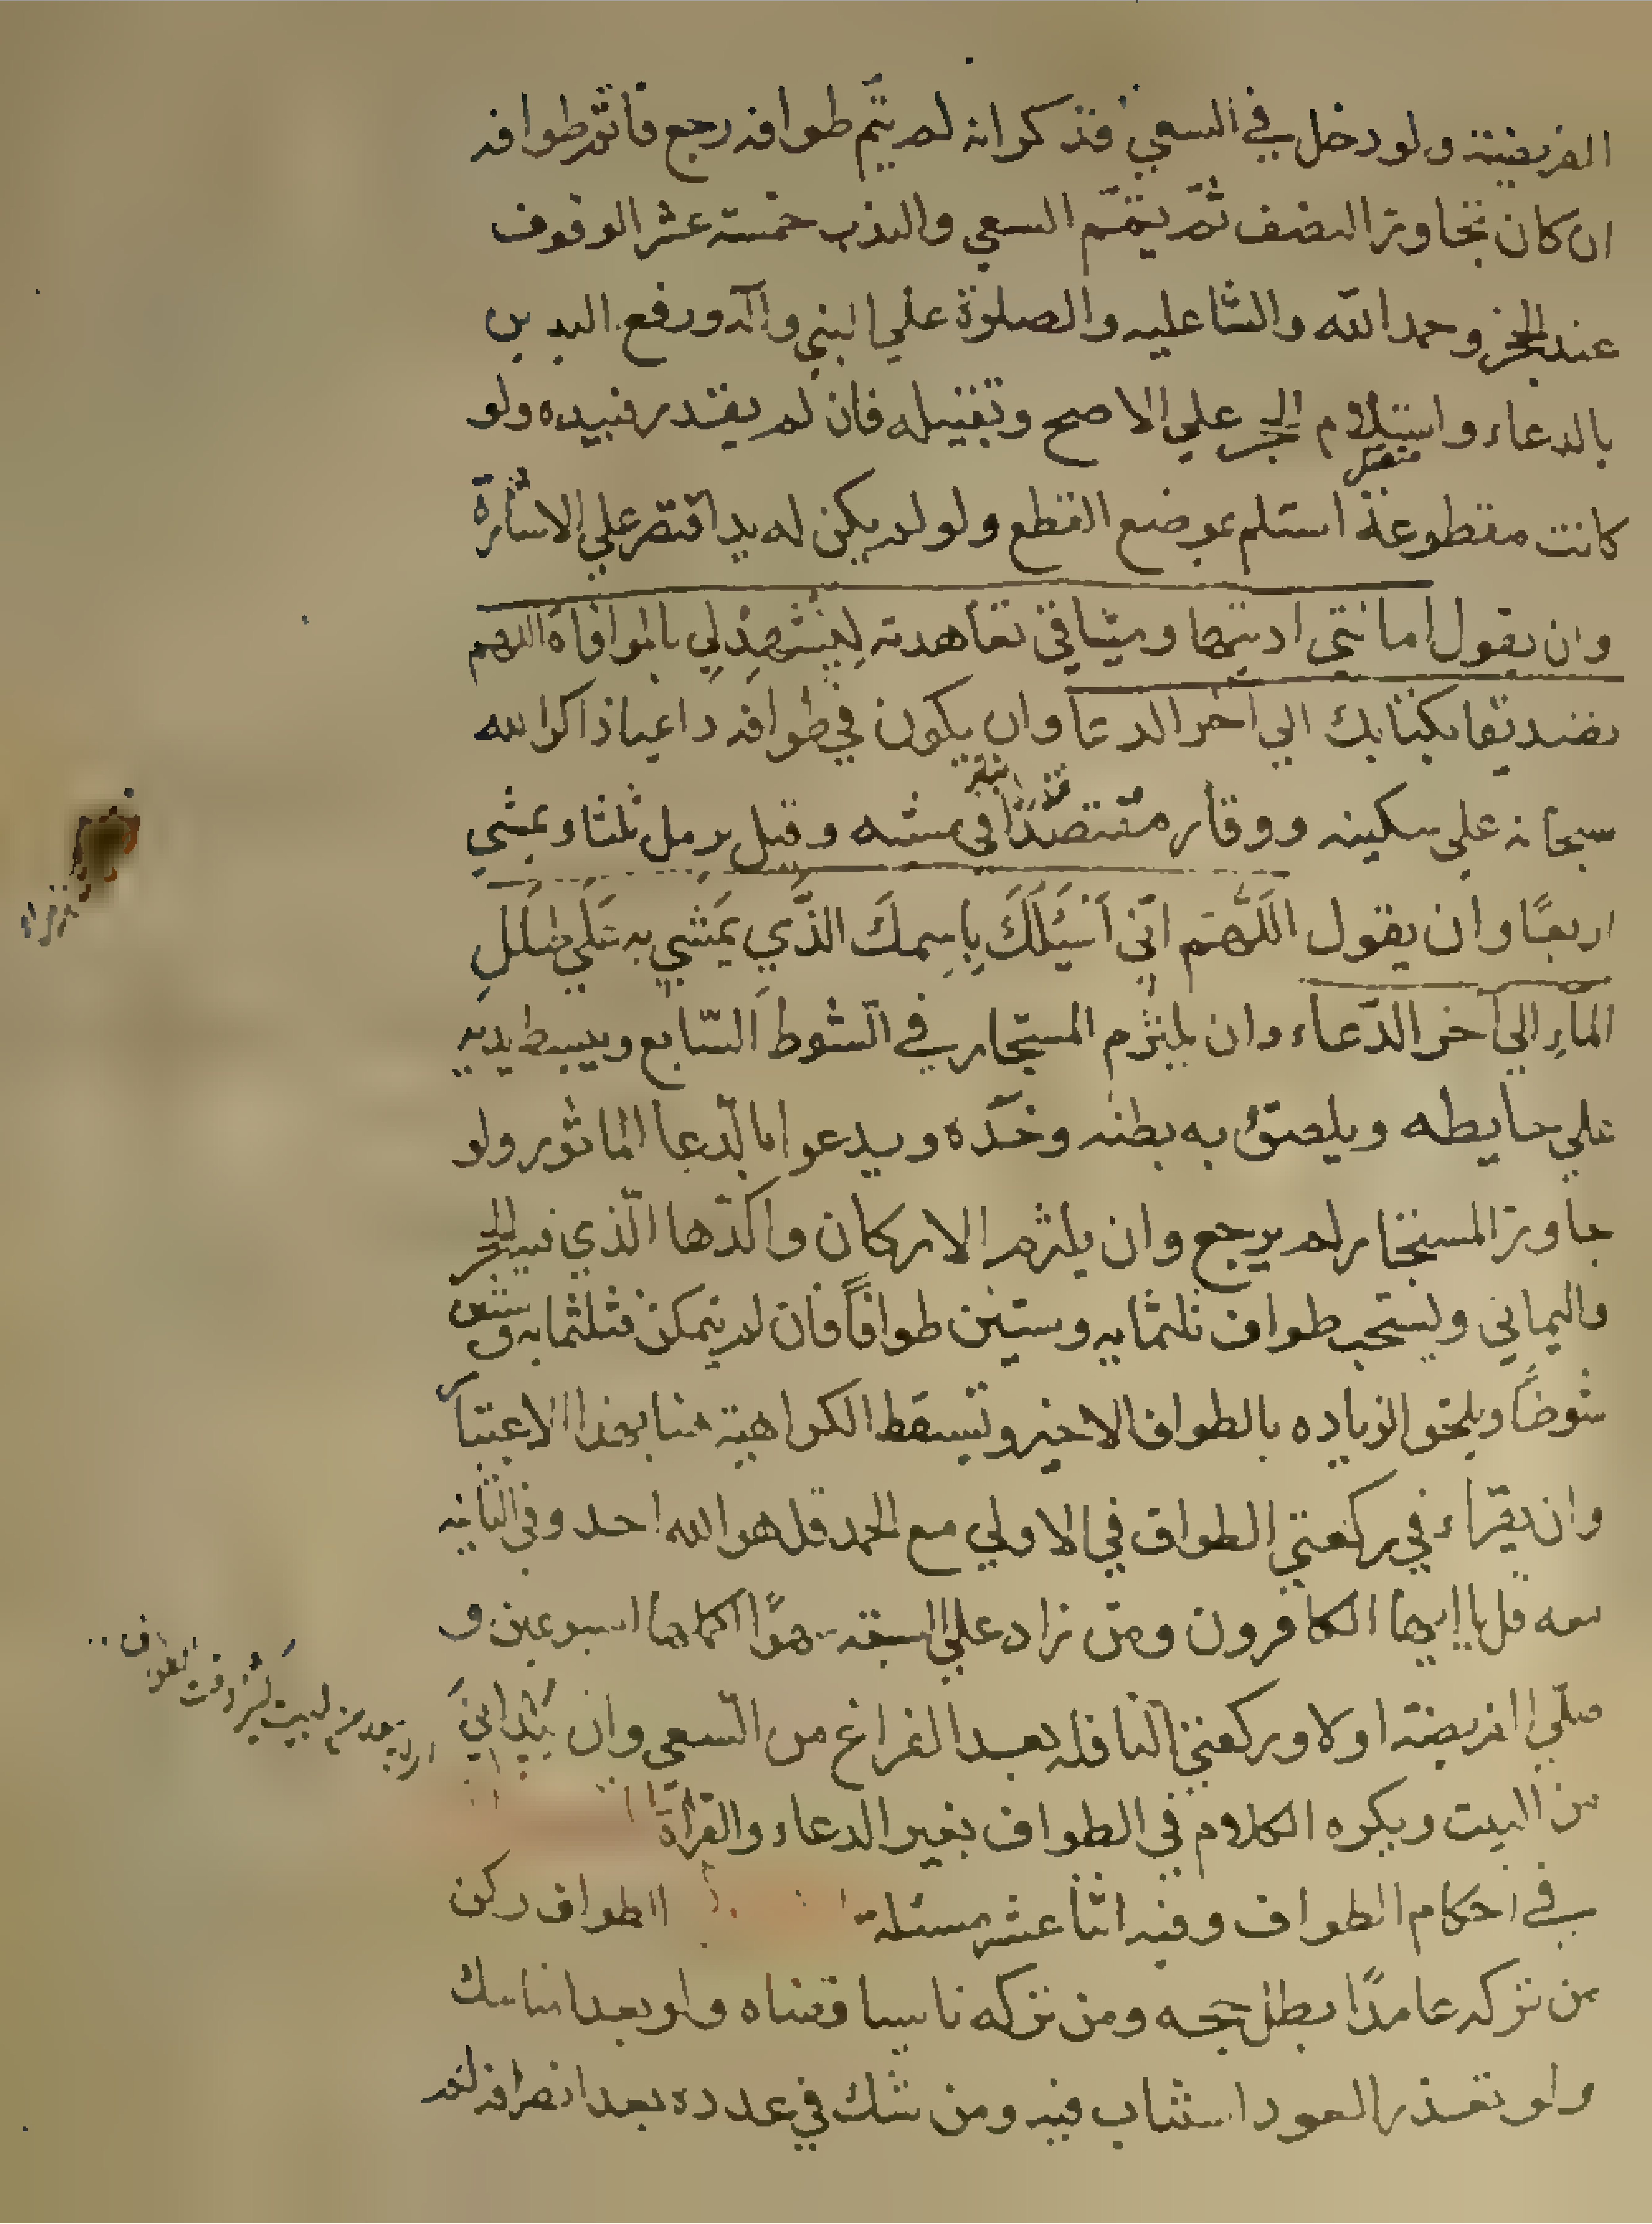 الفريضة ولو دخل في السعي فذكر انه لم يتم طوافه رجع فاتم طوافه
ان كان تجاوز النصف ثم يتمم السعي والندب خمسة عشر الوقوف
عند الحجر وحمد الله والثنا عليه والصلوة علي النبي وآله ورفع اليدين
بالدعاء واستلام الحجر علي الاصح وتقبيله فان لم يقدر فبيده ولو
كانت مقطوعة استلم بموضع القطع ولو لم يكن له يد اقتصر علي الاشارة
وان يقول امانتي اديتها وميثاقي تعاهدته لِيَشْهَدَ لِي بالموافاة اللهم
تصديقا بكتابك الي اخر الدعا وان يكون في طوافه داعيا ذاكرا لله
سبحانه علي سكينه ووقار مقتصدًا في مشيه وقيل يرمل ثلثا ويمشي
اربعًا وان يقول اللَّهُمَّ انّي اَسْئَلُكَ بِاسِمكَ الذَّي يَمَشي به عَلَي طَلَلِ
المآءِ الي آخر الدّعآء وان يلتزم المستجار في الشّوط السّابع ويبسط يديه
علي حايطه ويلصق به بطنه وخدّه ويدعوا بالدّعا الماثور ولو
جاوز المستجار لم يرجع وان يلتزم الاركان واكدّها الّذي فيه الحجر
واليماني ويستحب طواف ثلثمايه وستين طوافًا فان لم يتمكن فثلثمايه وستين
شوطًا ويلحق الزياده بالطواف الاخير وتسقط الكراهية هنا بهذا الاعتبار
وان يقراء في ركعتي الطواف في الاولي مع الحمد قل هو الله احد وفي الثانيه
معه قل يا ايها الكافرون ومن زاد علي السبعة سهوًا اكملها اسبوعين و
صلّي الفريضة اولا وركعتي النافله بعد الفراغ من السّعي وان يتداني
من البيت ويكره الكلام في الطواف بغير الدعاء والقرآة
في احكام الطواف وفيه اثنا عشر مسئلة الطواف ركن
من تركه عامدًا بطل حجه ومن تركه ناسيا قضاه ولو بعد المناسك
ولو تعذر العود استناب فيه ومن شك في عدده بعد انصرافه لم